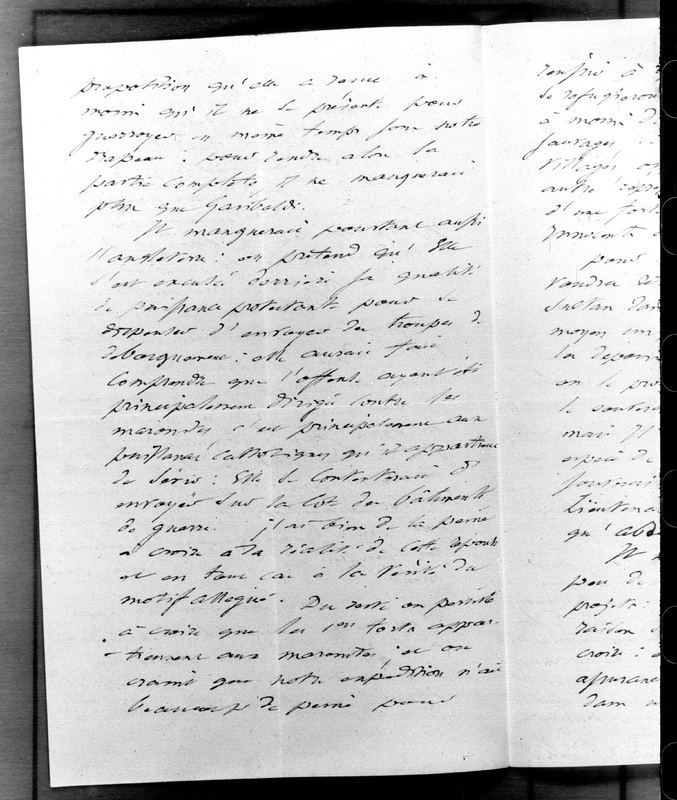 proposition qu'elle a reçue à
moins qu'il ne se présente pour
guerroyer en même temps sous notre
drapeau : pour rendre alors la
partie complète il ne manquerait
plus que Garibaldi.
Il manquerait pourtant aussi
l'angleterre : on prétend qu'Elle
s'est excusée derrière sa qualité
de puissance protestante pour se
dispenser d'envoyer des troupes de
débarquement : elle aurait fait
comprendre que l'offense ayant été
principalement dirigée contre les
maronites c'est principalement aux
puissances catholiques qu'il appartient
de sévir : Elle se contenterait d'
envoyer sur la côte des bâtiments
de guerre. j'ai bien de la peine
à croire à la réalité de cette
et en tout cas à la vérité du
motif allégué. Du reste on persiste
à croire que les 1ers torts appar-
tiennent aux maronites ; et on
craint que notre expédition n'ait
beaucoup de peine pour
se
à moins
sauvages
villages
autre
d'une
innocente
pour
rendre
Sultan dans
moyen
la
on le
le
mais Il
espèce de
Lieutenant
qu'
Il
peu de
projets
raison
croire :
assurance
dans